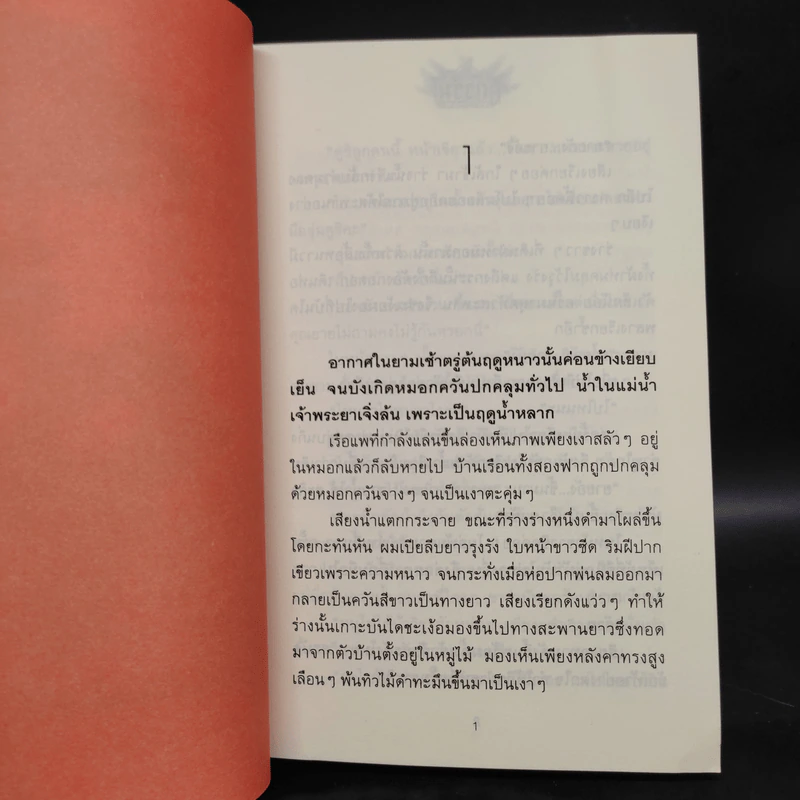 1
อากาศในยามเช้าตรู่ต้นฤดูหนาวนั้นค่อนข้างเยียบ
เย็น จนบังเกิดหมอกควันปกคลุมทั่วไป น้ำในแม่น้ำ
เจ้าพระยาเจิ่งล้น เพราะเป็นฤดูน้ำหลาก
เรือแพที่กำลังแล่นขึ้นล่องเห็นภาพเพียงเงาสลัวๆ อยู่
ในหมอกแล้วก็ลับหายไป บ้านเรือนทั้งสองฟากถูกปกคลุม
ด้วยหมอกควันจางๆ จนเป็นเงาตะคุ่มๆ
เสียงน้ำแตกกระจาย ขณะที่ร่างร่างหนึ่งดำมาโผล่ขึ้น
โดยกะทันหัน ผมเปียลีบยาวรุงรัง ใบหน้าขาวซีด ริมฝีปาก
เขียวเพราะความหนาว จนกระทั่งเมื่อห่อปากพ่นลมออกมา
กลายเป็นควันสีขาวเป็นทางยาว เสียงเรียกดังแว่วๆ ทำให้
ร่างนั้นเกาะบันไดชะเง้อมองขึ้นไปทางสะพานยาวซึ่งทอด
มาจากตัวบ้านตั้งอยู่ในหมู่ไม้ มองเห็นเพียงหลังคาทรงสูง
เลือนๆ พ้นทิวไม้ดำทะมึนขึ้นมาเป็นเงาๆ
1